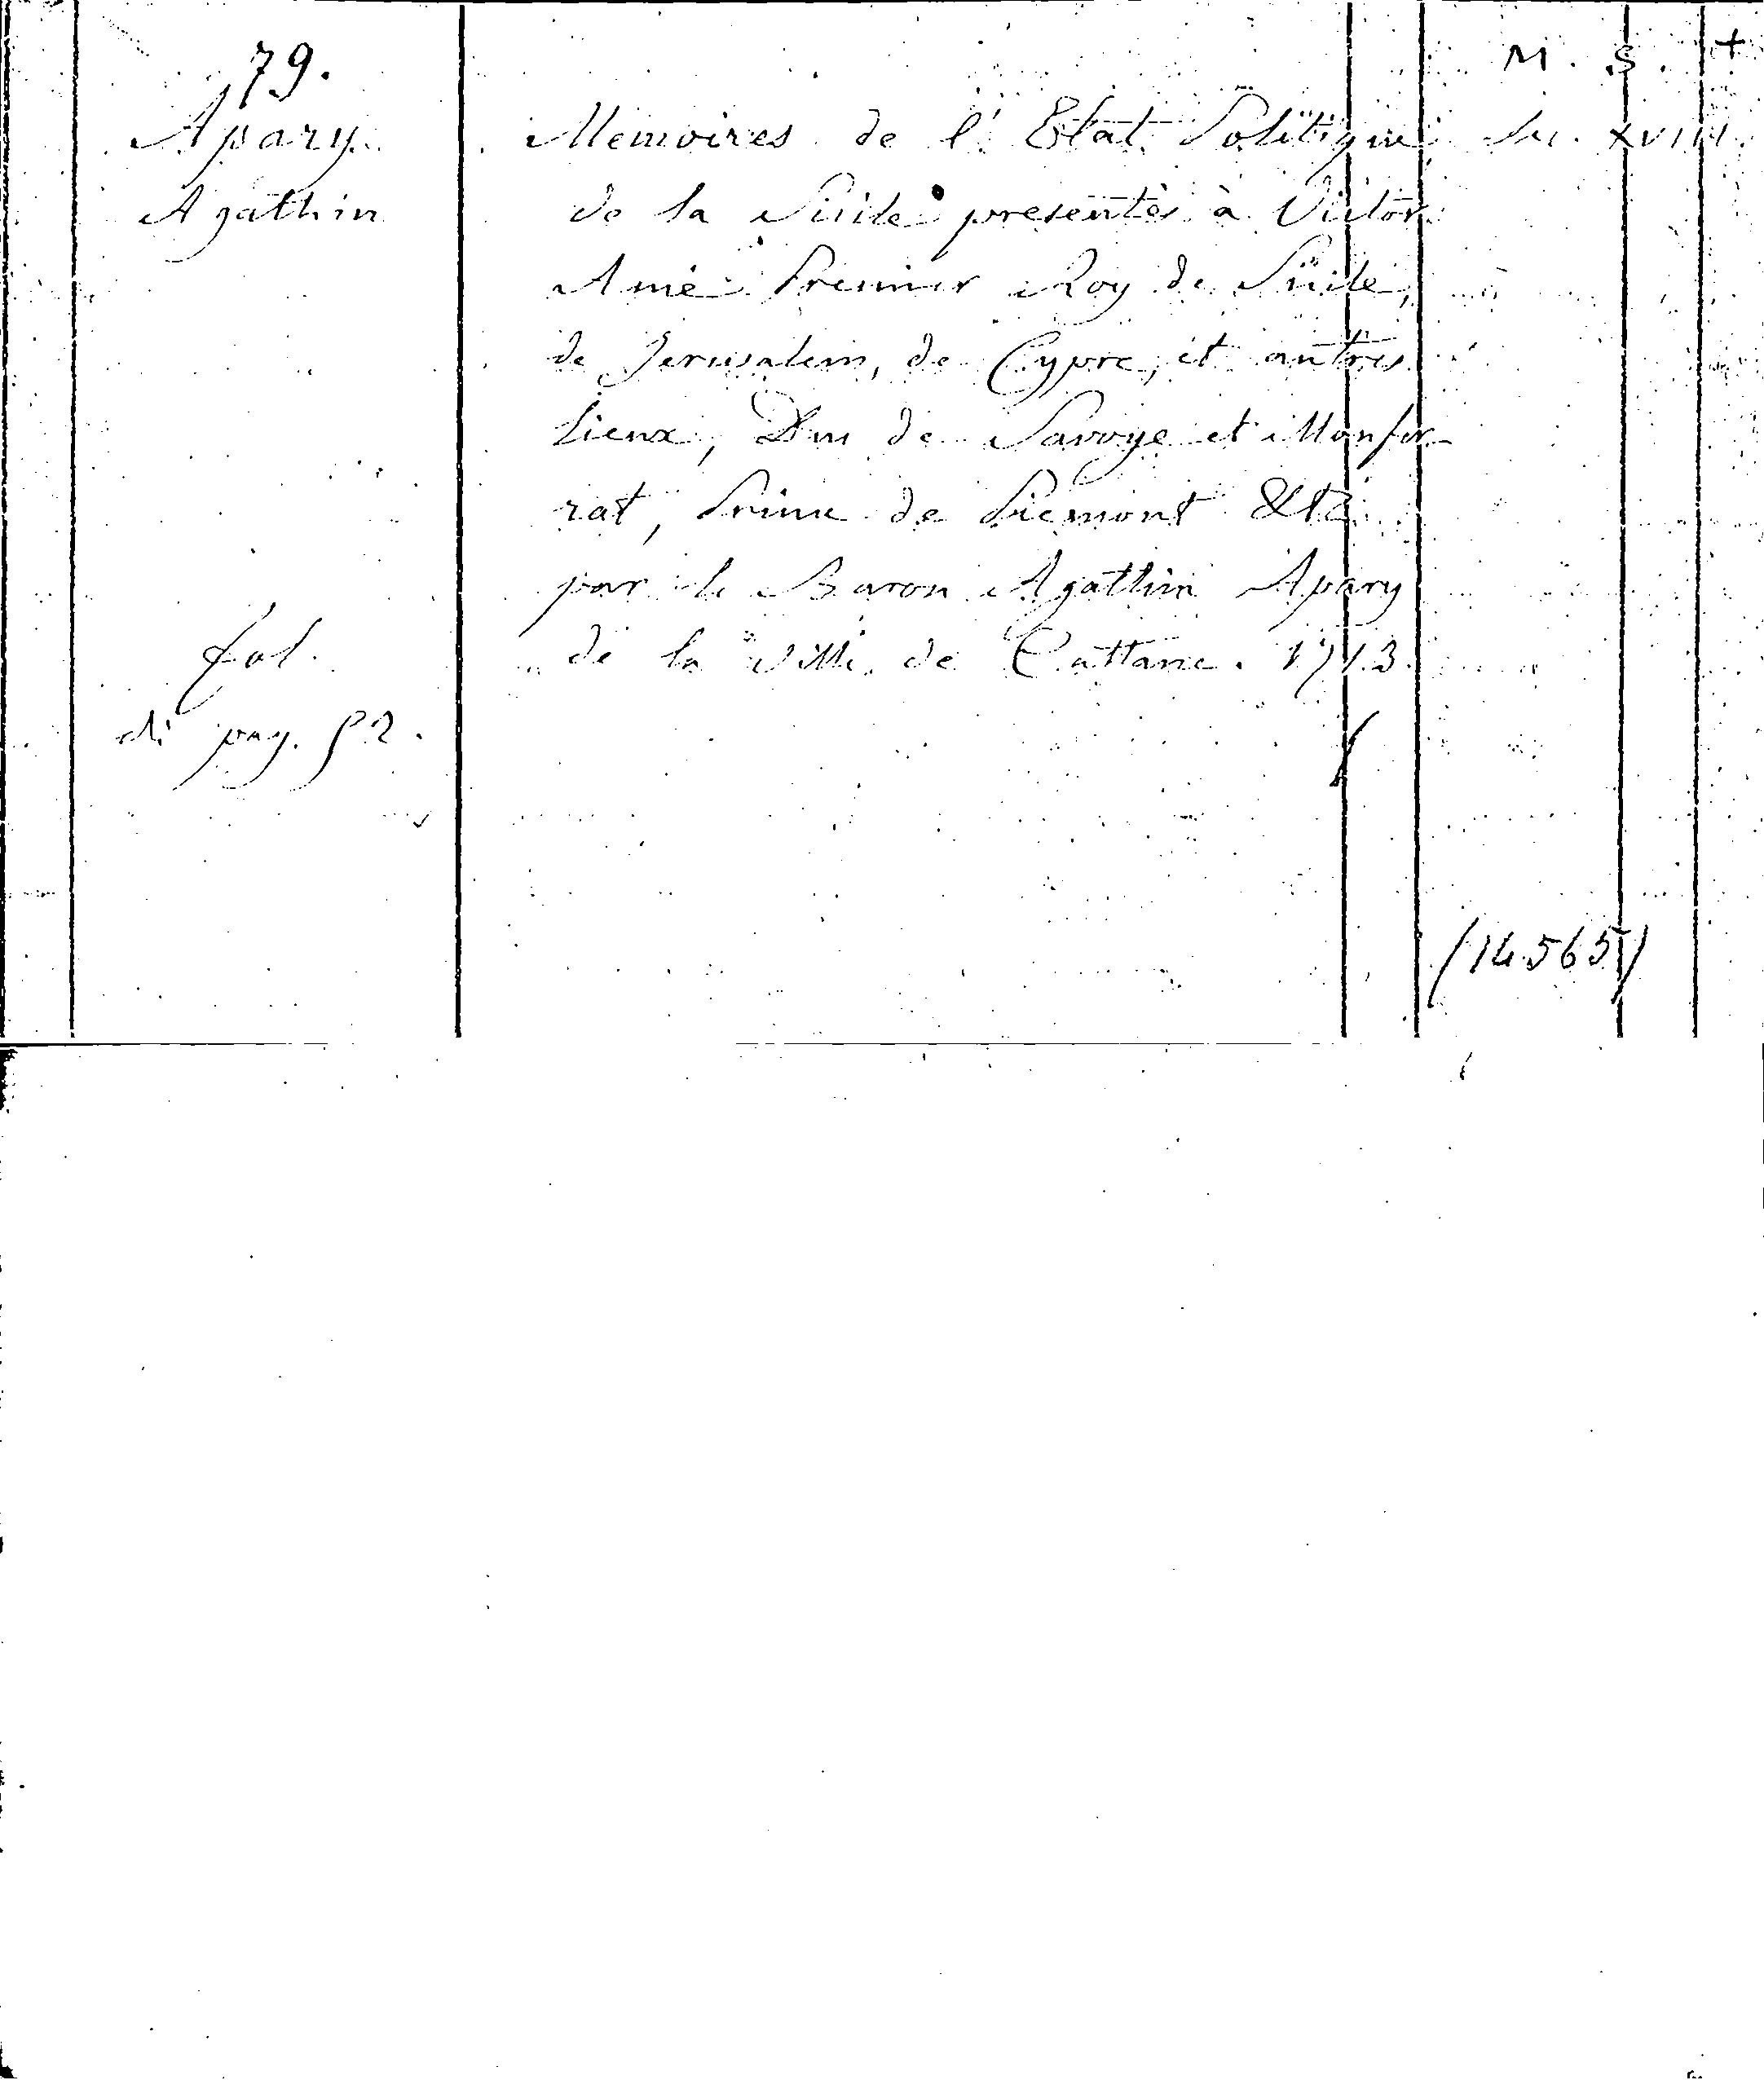 79.
M. S. +
Apary
Agathin
Memoires de l' Etat Politique
Sec. XVIII.
de la Sicile presentés à Victor
Amé Premier Roy de Sicile,
de Jerusalem, de Cypre, et autres
Lieux, Duc de Savoye et Monfer-
rat, Prince de Piemont &tc.
par le Baron Agathin Apary
de la Ville de Cattane. 1713.
fol.
di pag. 52.
(14.565)